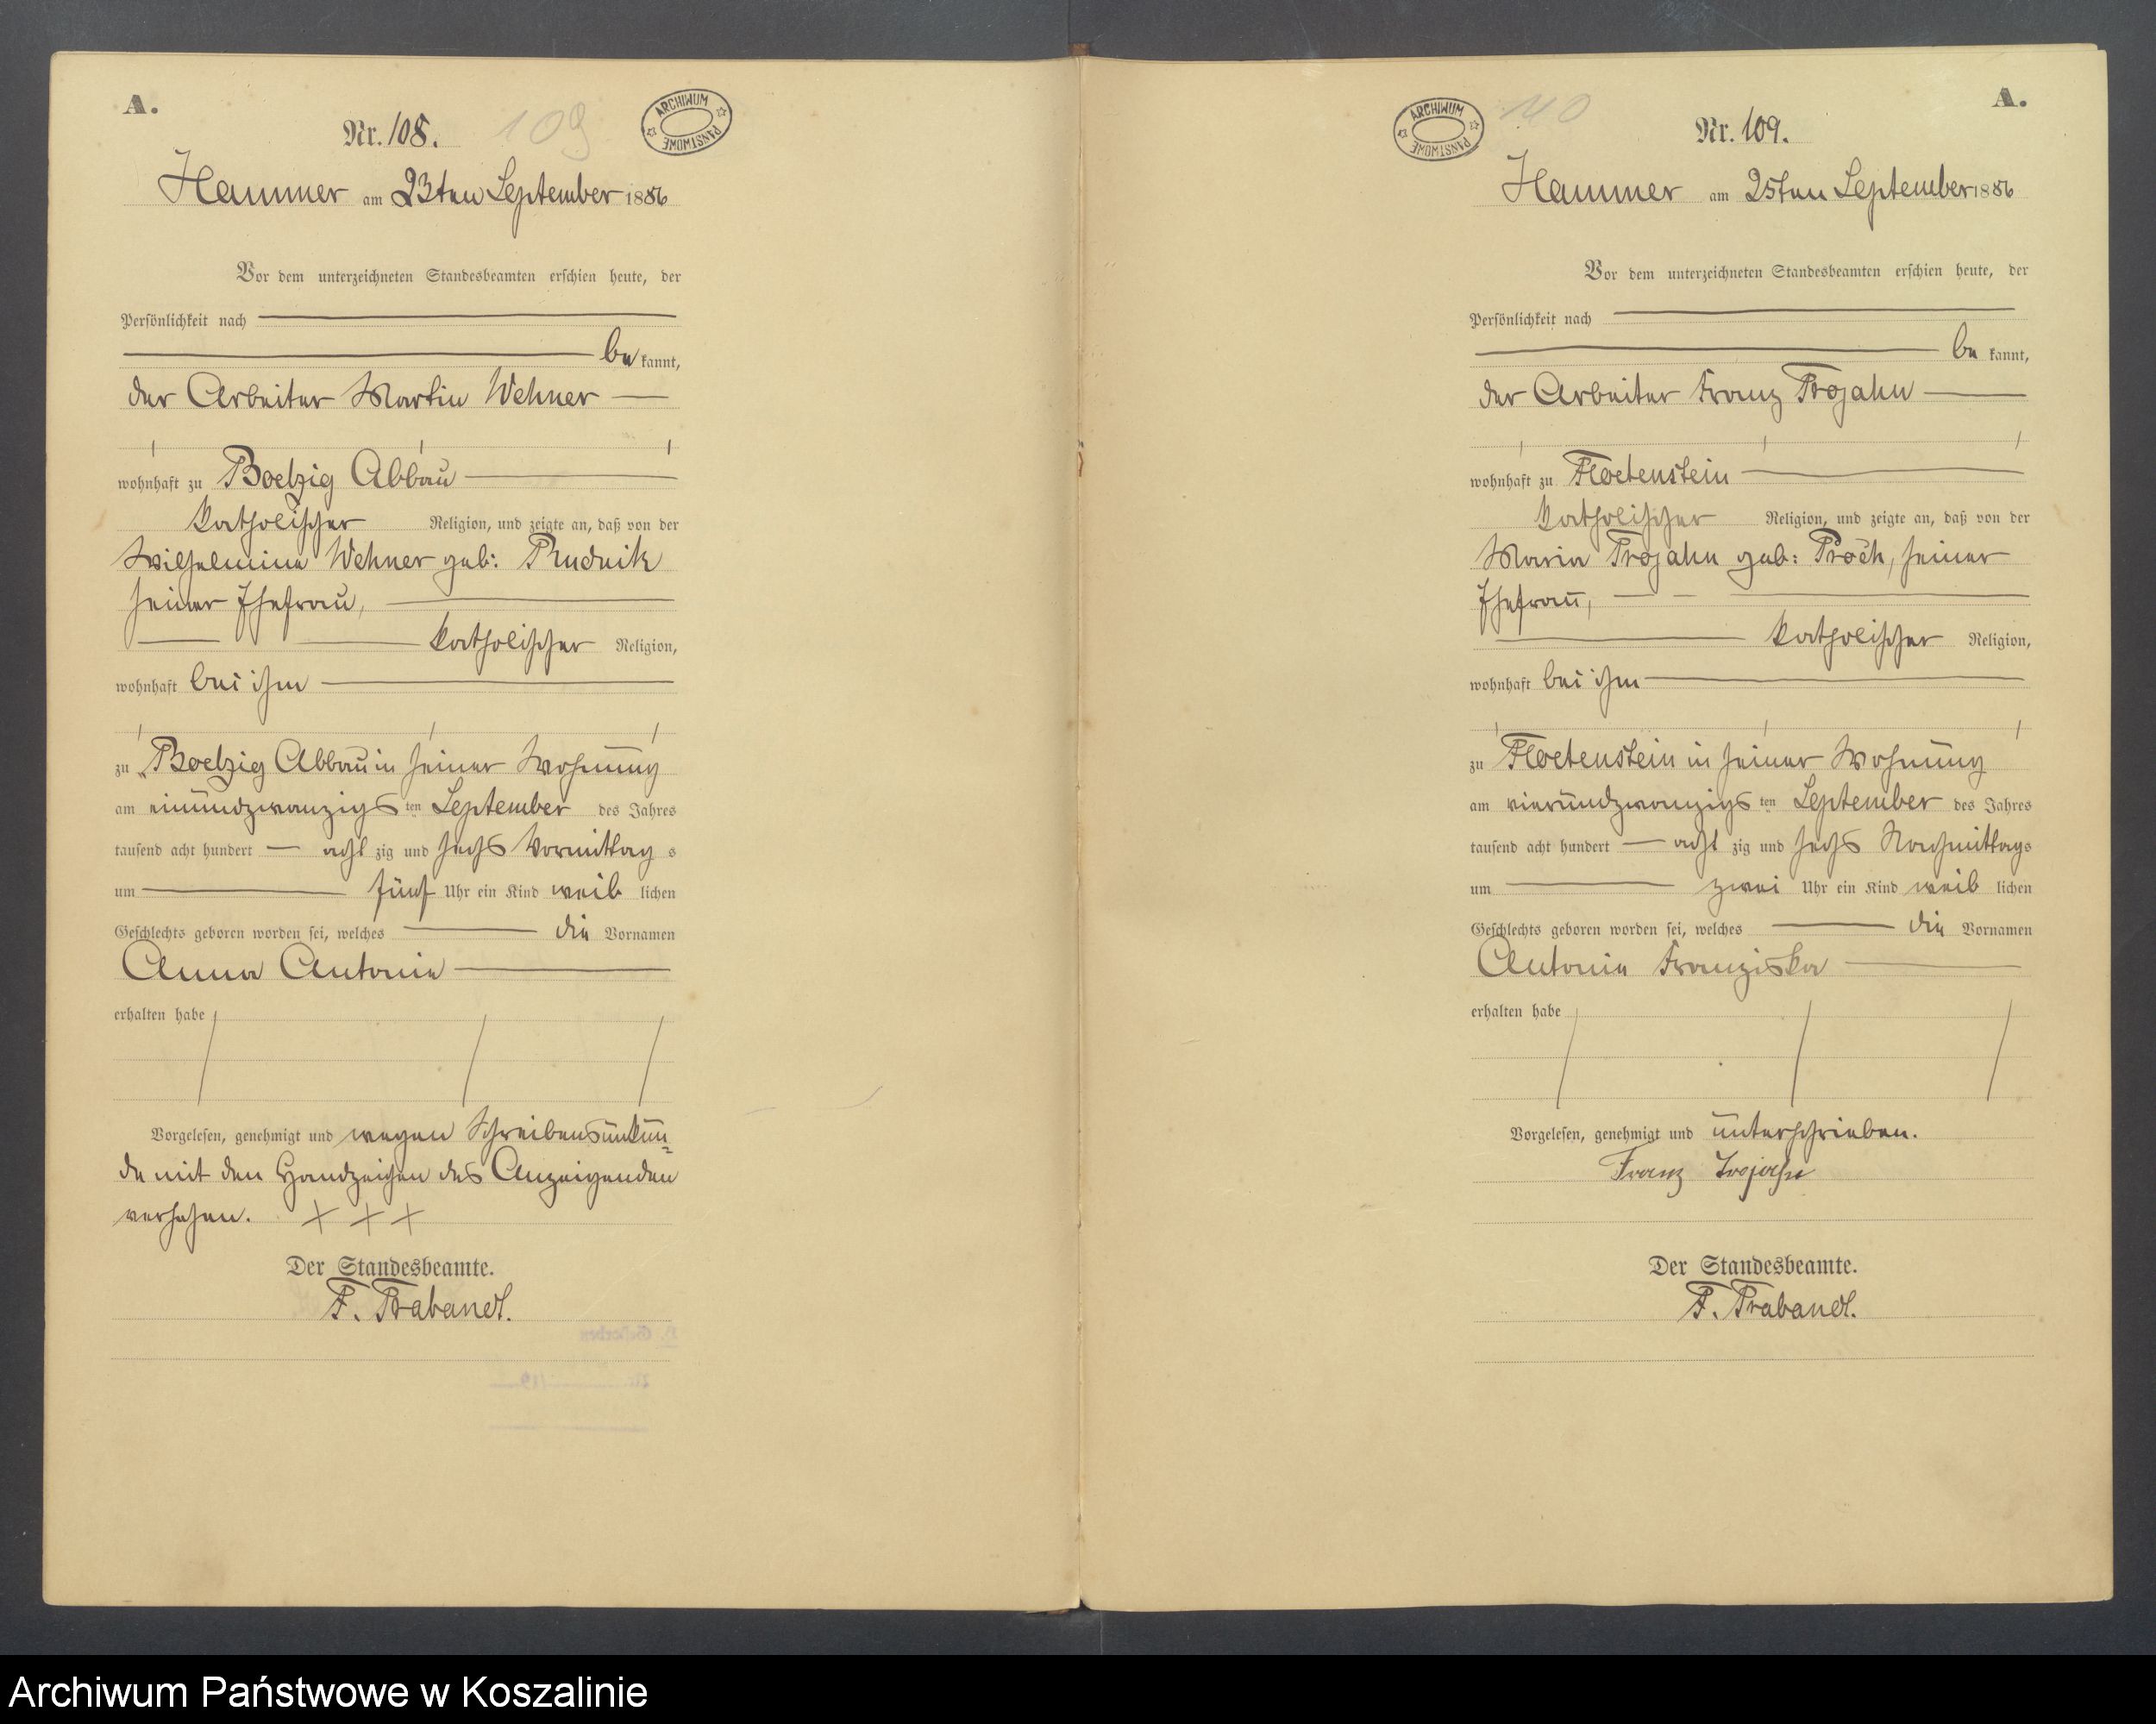 A.
Nr. 108.
109
ARCHIWUM PAŃSTWOWE
Hammer am 23ten September 1886
Vor dem unterzeichneten Standesbeamten erschien heute, der
Persönlichkeit nach
be kannt,
der Arbeiter Martin Wehner
wohnhaft zu Boelzig Abbau
katholischer Religion, und zeigte an, daß von der
Wilhelmine Wehner geb: Rudnik
seiner Ehefrau,
katholischer Religion,
wohnhaft bei ihm
zu Boelzig Abbau in seiner Wohnung
am einundzwanzigs ten September des Jahres
tausend acht hundert acht zig und sechs Vormittag s
um fünf Uhr ein Kind weib lichen
Geschlechts geboren worden sei, welches die Vornamen
Anna Antonie
erhalten habe
Vorgelesen, genehmigt und wegen Schreibensunkun=
de mit den Handzeichen des Anzeigenden
versehen. + + +
Der Standesbeamte.
F. Trabandt.
A.
110
ARCHIWUM PAŃSTWOWE
Nr. 109.
Hammer am 25ten September 1886
Vor dem unterzeichneten Standesbeamten erschien heute, der
Persönlichkeit nach
be kannt,
der Arbeiter Franz Trojahn
wohnhaft zu Floetenstein
katholischer Religion, und zeigte an, daß von der
Maria Trojahn geb: Proch, seiner
Ehefrau,
katholischer Religion,
wohnhaft bei ihm
zu Floetenstein in seiner Wohnung
am vierundzwanzigs ten September des Jahres
tausend acht hundert acht zig und sechs Nachmittags
um zwei Uhr ein Kind weib lichen
Geschlechts geboren worden sei, welches die Vornamen
Antonie Franziska
erhalten habe
Vorgelesen, genehmigt und unterschrieben.
Franz Trojahn
Der Standesbeamte.
F. Trabandt.
Archiwum Państwowe w Koszalinie